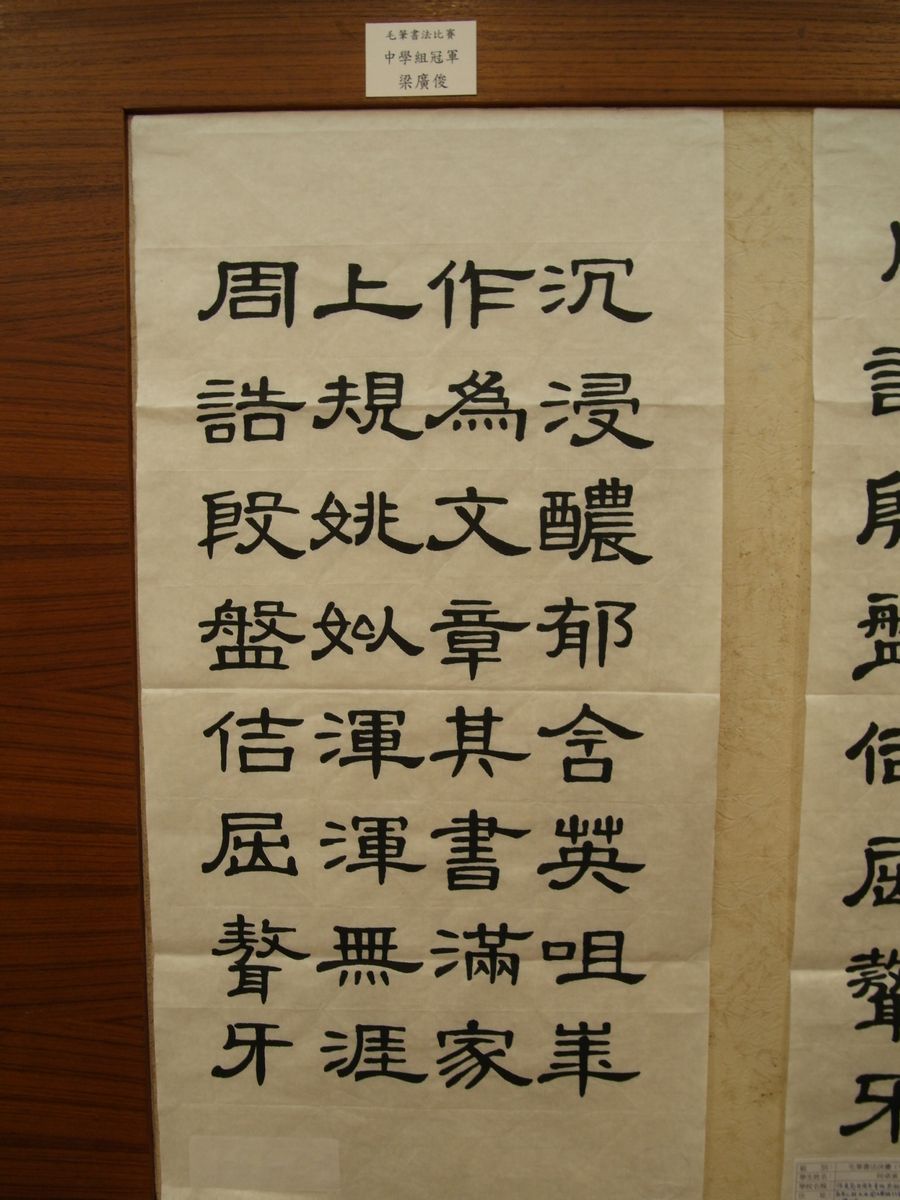 毛筆書法比賽
中學組冠軍
梁廣俊
沉浸醲郁含英咀華
作為文章其書滿家
上規姚姒渾渾無涯
周誥殷盤佶屈聱牙
學生姓名
學校名稱